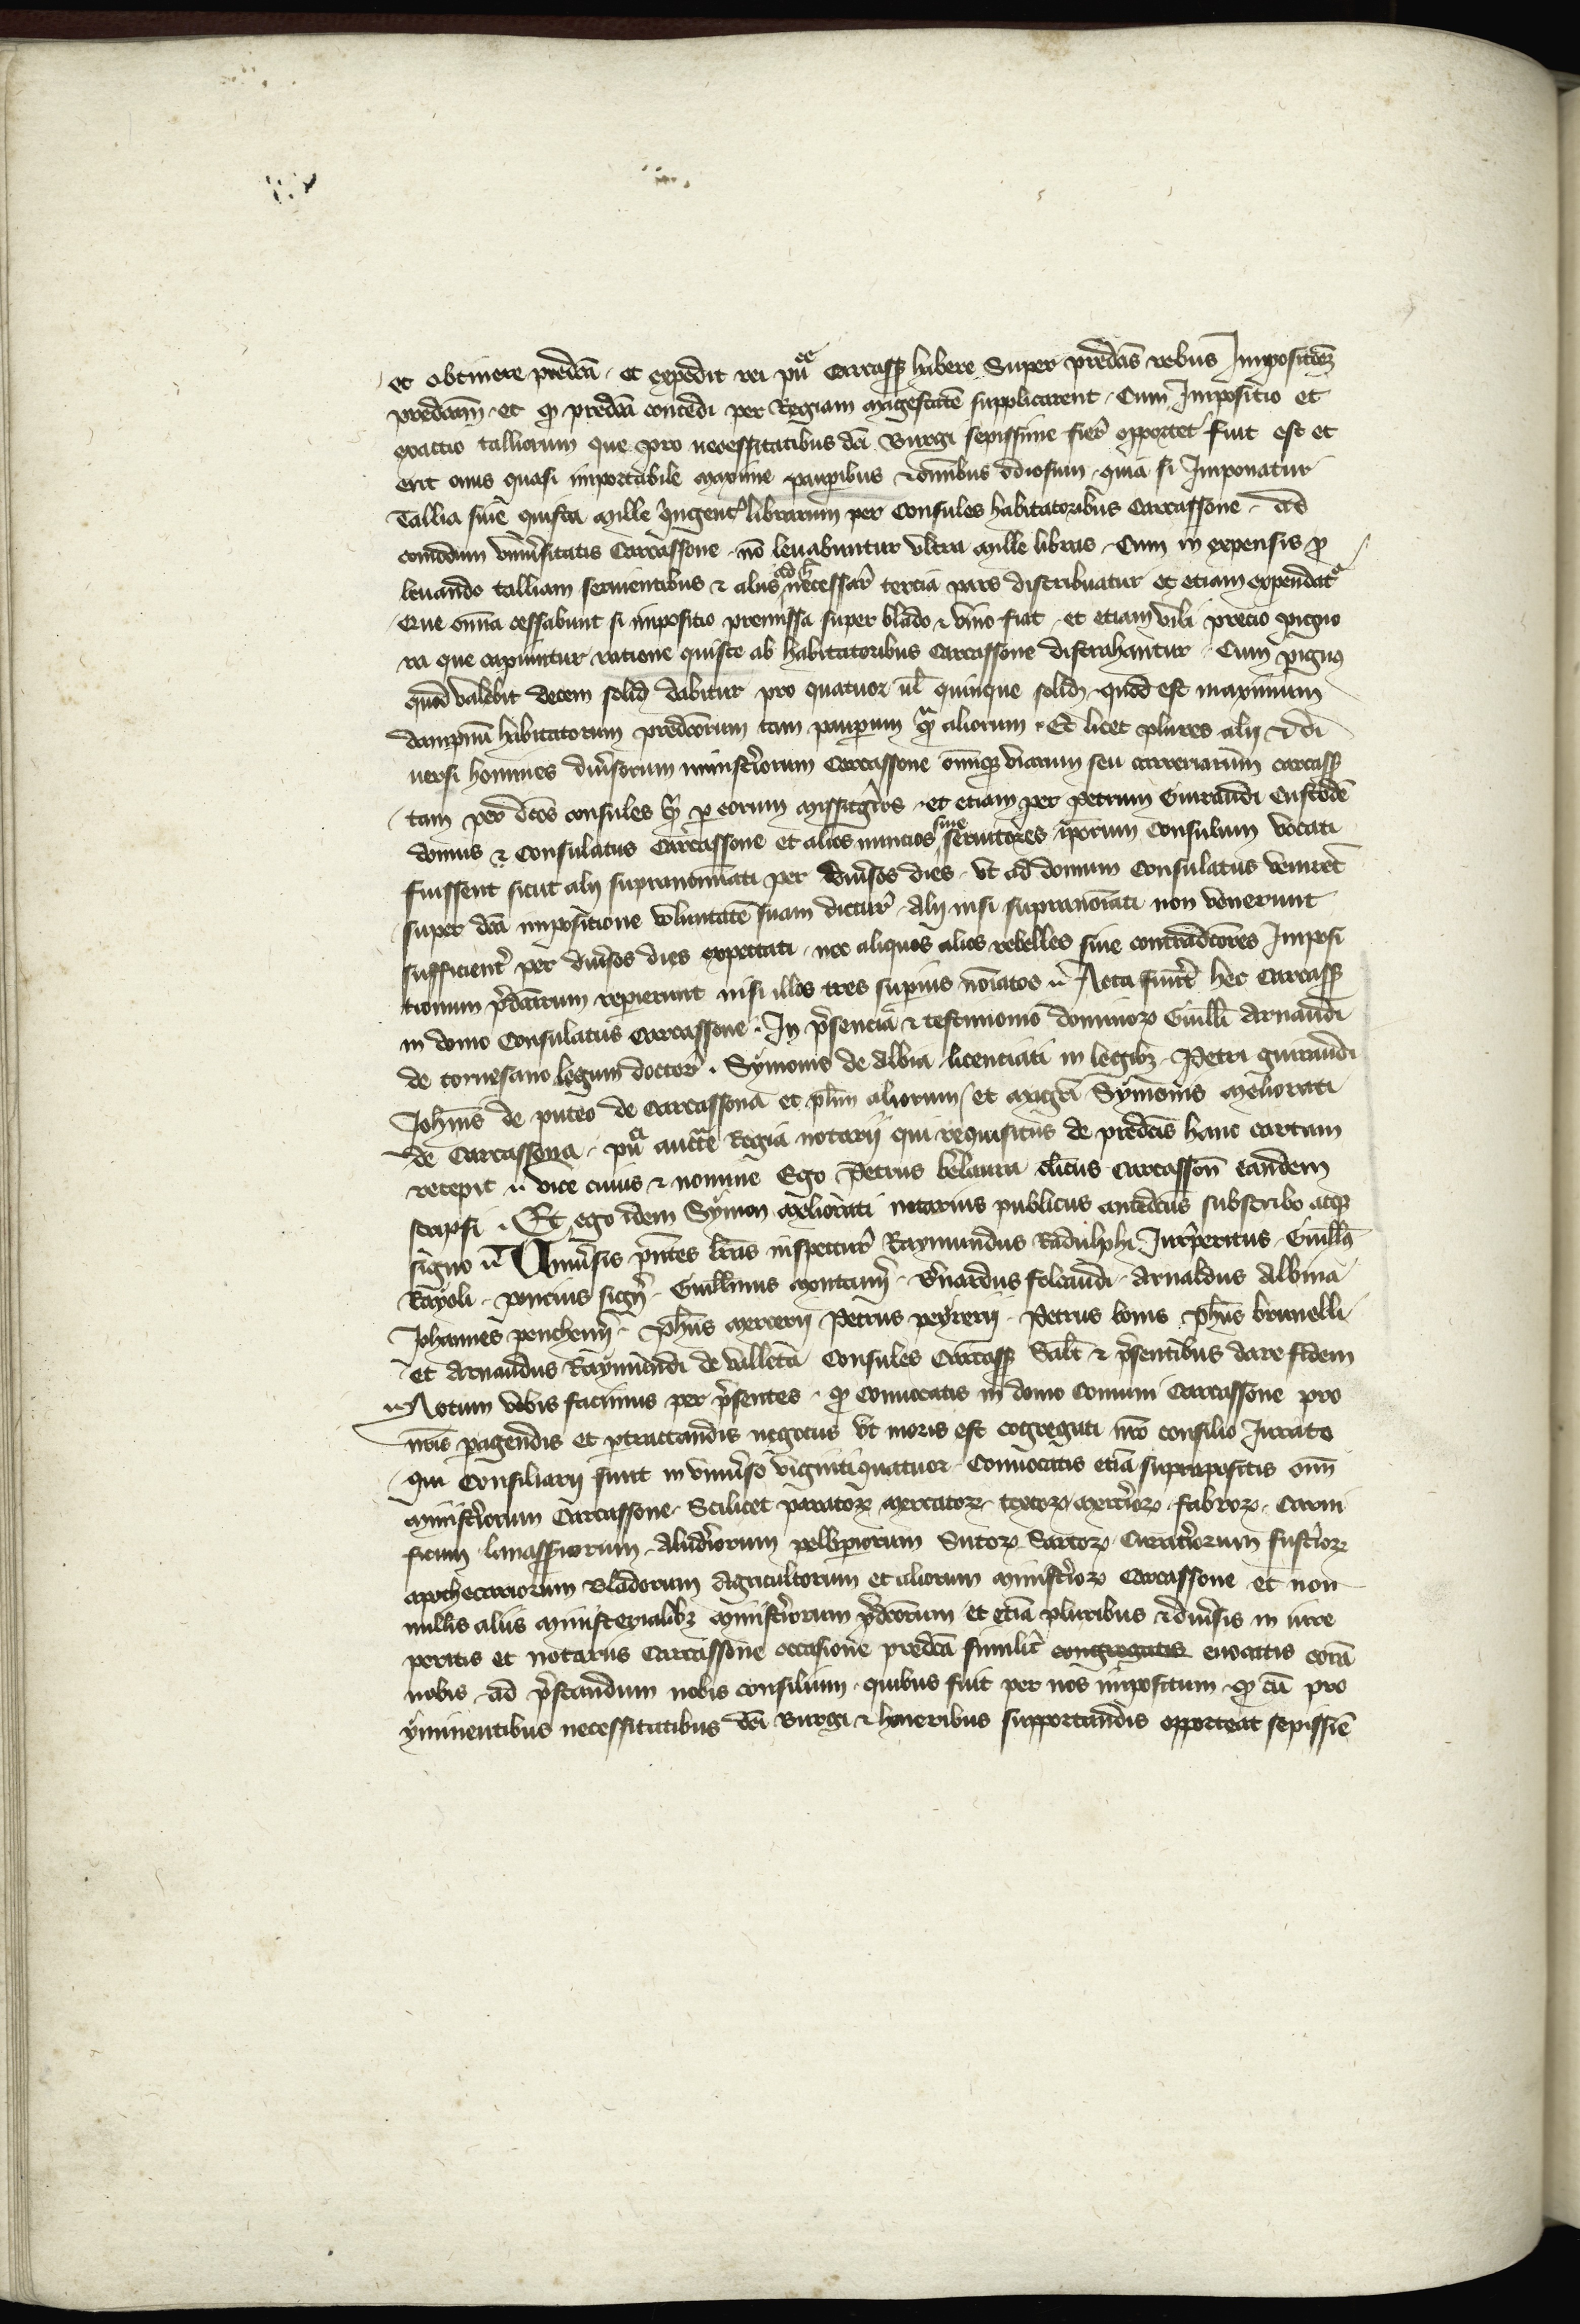 et obtinere predca̅ · et expedit rei puᷓce Carcass̅ habere Super predc̅is rebus Impositoe̅z
predcam̅ · et qᷓ predca̅ concedi per Regiam magestate̅ supplicarent · Cum Impositio et
exactio talliarum que pro necessitatibus dc̅i Burgi sepissime fieri̅ opportet fuit est et
erit onus quasi importabile maxime paup̅ibus & om̅ibus odiosum · quia si Imponatur
Tallia siue̅ quista mille q̅ngentar̅ librarum per Consules habitatoribus Carcassone · Ad
comodum vniu̅sitatis Carcassone · no̅ leuabuntur vltra mille libras · Cum in expensis p̱ro
leuando talliam seruientibus & aliis ad h̅ necessar̅ tercia pars distribuatur et etiam expendat᷑
Que om̅ia cessabunt si impositio premissa super blado & vino fiat · et etiam vili precio pigno
ra que capiuntur ratione quiste ab habitatoribus Carcassone distrahantur · Cum pignus
quod valebit decem solid̅ dabitur pro quatuor ul̅ quinque solid̅ · quod est maximum
dampnu̅ habitatorum predcorum tam paup̅um qᷓ aliorum · Et licet plures alij & di
uersi homines diu̅sorum minist̅iorum Carcassone om̅iqᷓ viarum seu carreriarum carcass̅
tam per dc̅os consules qᷓ p̱ eorum missatg̅ios · et etiam per Petrum Guiraudi Custode̅
domus & Consulatus Carcassone et alios nuncios siue seruitores ip̅orum Consulum vocati
fuissent sicut alij supranominati per diu̅sos dies · vt ad domum Consulatus veniret̅
super dca̅ impositione voluntate̅ suam dictur̅ · Alij nisi supranoi̅ati non venerunt
sufficient̅ per diu̅sos dies expectati · nec aliquos alios rebelles siue contradc̅ores Imposi
tionum p̅dc̅arum repierunt nisi illos tres sup̱ius noi̅atos ·· Acta fuert̅ hec Carcass̅
in domo Consulatus Carcassone · In p̅sencia & testimonio dominoꝝ Guill̅i Arnaudi
de tornesano legum doctor̅ · Symonis de Albia licenciati in legibꝫ · Petri guiraudi
Joh̅nis de puteo de Carcassona et pl̅im aliorum / et mag̅ri Symonis meliorati
de Carcassona · puᷓca auct̅te Regia notarij qui requisitus de predc̅is hanc cartam
recepit ·· vice cuius & nomine Ego Petrus belᷓaura cl̅icus Carcasson̅ eandem
scripsi · Et ego idem Symon meliorati notarius publicus antedc̅us subscribo atqᷓ
signo ·· Vniu̅sis p̅ntes lr̅as inspectur̅ Raymundus Radulphi Jurisperitus · Guill̅s
Rayoli · poncius sign̅ · Guillmus montani̅ · B̅nardus folcaudi · Arnaldus Albina
Johannes pencheni̅ · P̅hus mercerij Petrus peyrerij · Petrus bonis P̅hus brunelli
et Arnaudus Raymundi de valleta Consules Carcass̅ Salt̅ & p̅sentibus dare fidem
·· Notum vobis facimus per p̅sentes · qᷓ conuocatis in domo Comuni Carcassone pro
nr̅is p̱agendis et p̱tractandis negociis vt moris est cogregati nr̅o consilio Jurato
qui Consiliarij sunt in vniu̅so viginti quatuor · Conuocatis etia̅ suprapositis om̅
minist̅iorum Carcassone · Scilicet paratoꝝ mercatoꝝ · textoꝝ · merc̅ioꝝ · fabroꝝ · Carni
ficum lanass̅iorum · Alud̅iorum pellip̱iorum Sutoꝝ Sartoꝝ · Curat̅iorum fust̅ioꝝ
apothecariorum Bladorum Agricultorum et aliorum minist̅ioꝝ Carcassone et non
nullis aliis ministerialibꝫ minist̅iorum p̅dcorum et etia̅ pluribus & diu̅sis in iure
peritis et notariis Carcassone occasione predca̅ similit̅ congregatis euocatis cora̅
nobis · ad p̅standum nobis consilium · quibus fuit per nos impositum · qᷓ cu̅ pro
yminentibus necessitatibus dc̅i Burgi & honeribus supportandis opporteat sepissie̅